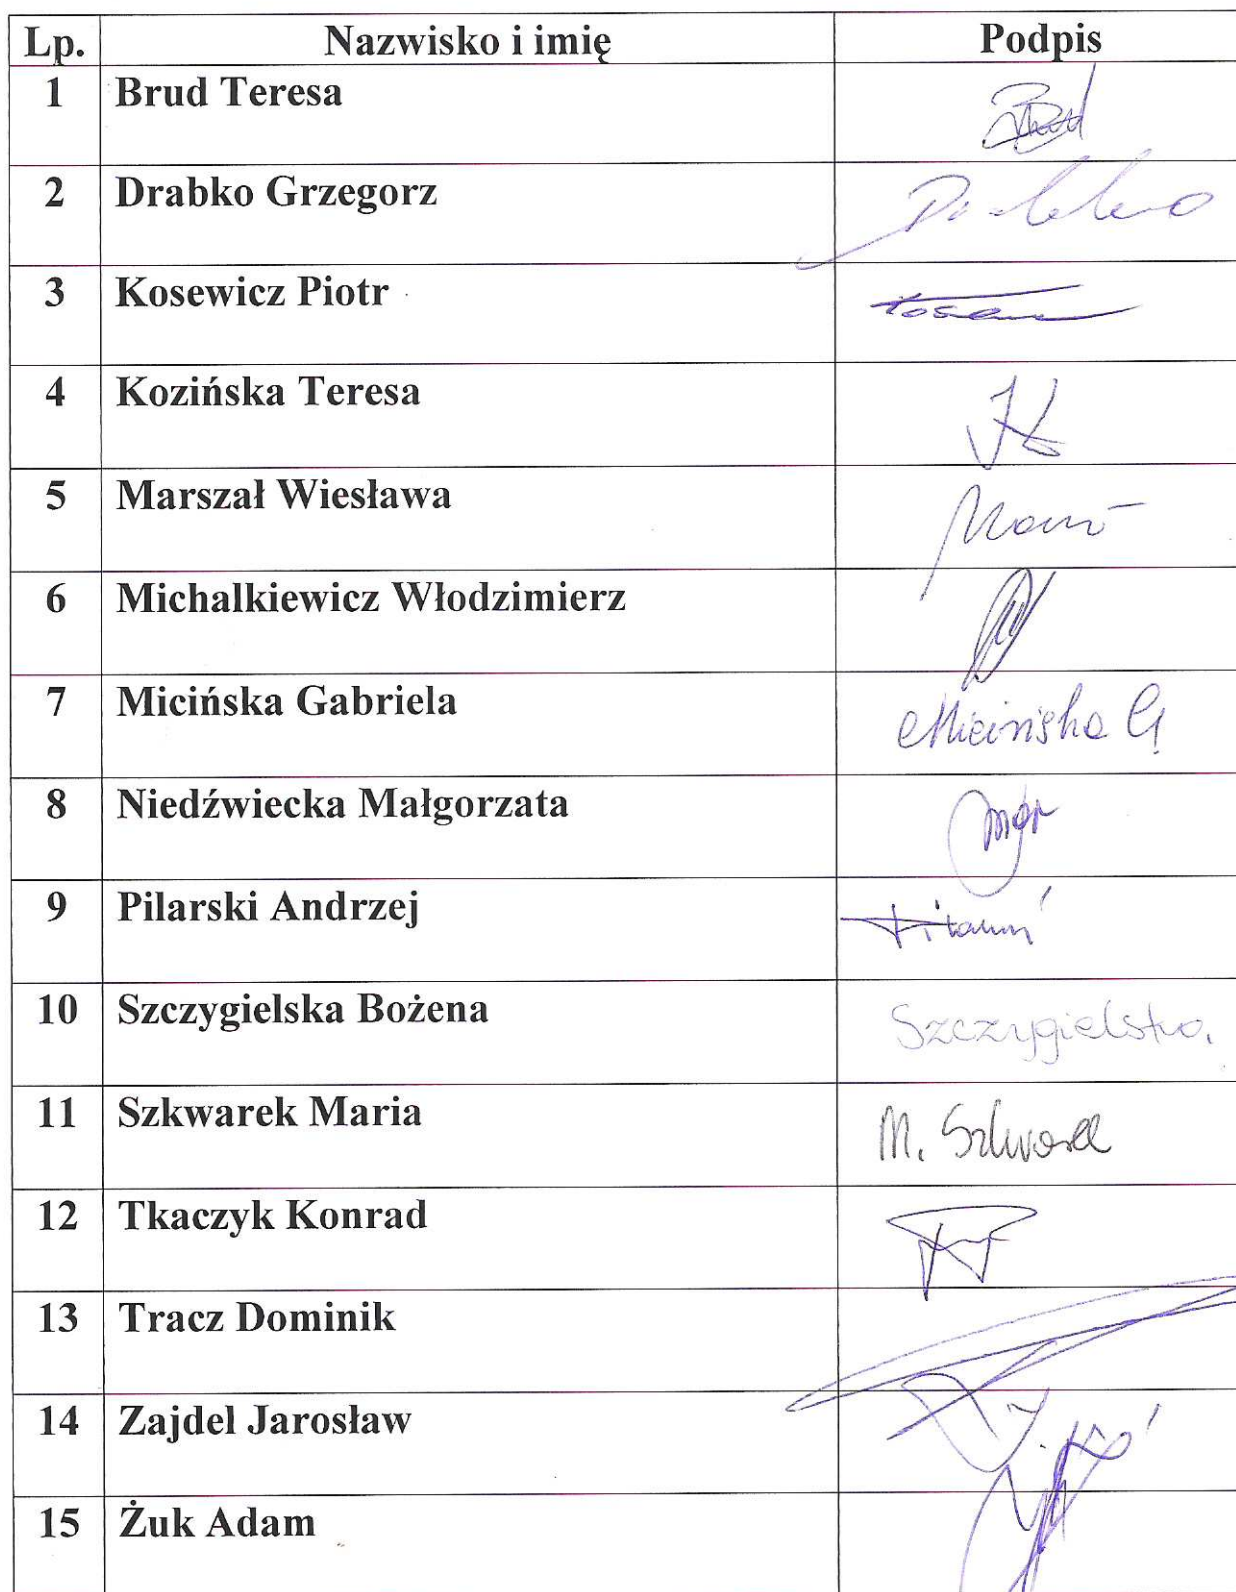 Lp. Nazwisko i imię Podpis
1 Brud Teresa
2 Drabko Grzegorz
3 Kosewicz Piotr
4 Kozińska Teresa
5 Marszał Wiesława
6 Michalkiewicz Włodzimierz
7 Micińska Gabriela Micińska G
8 Niedźwiecka Małgorzata
9 Pilarski Andrzej
10 Szczygielska Bożena Szczygielska
11 Szkwarek Maria M. Szkwarek
12 Tkaczyk Konrad
13 Tracz Dominik
14 Zajdel Jarosław
15 Żuk Adam